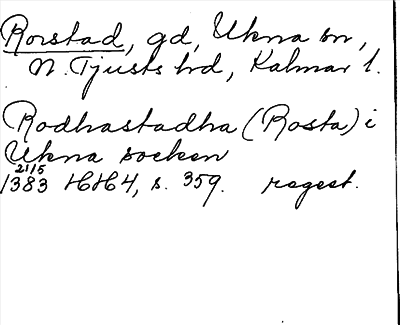 Rorstad, gd, Ukna sn,
N. Tjusts hd, Kalmar l.
Rodhastadha (Rosta) i
Ukna socken
21/5
1383 HH4, s. 359. regest.